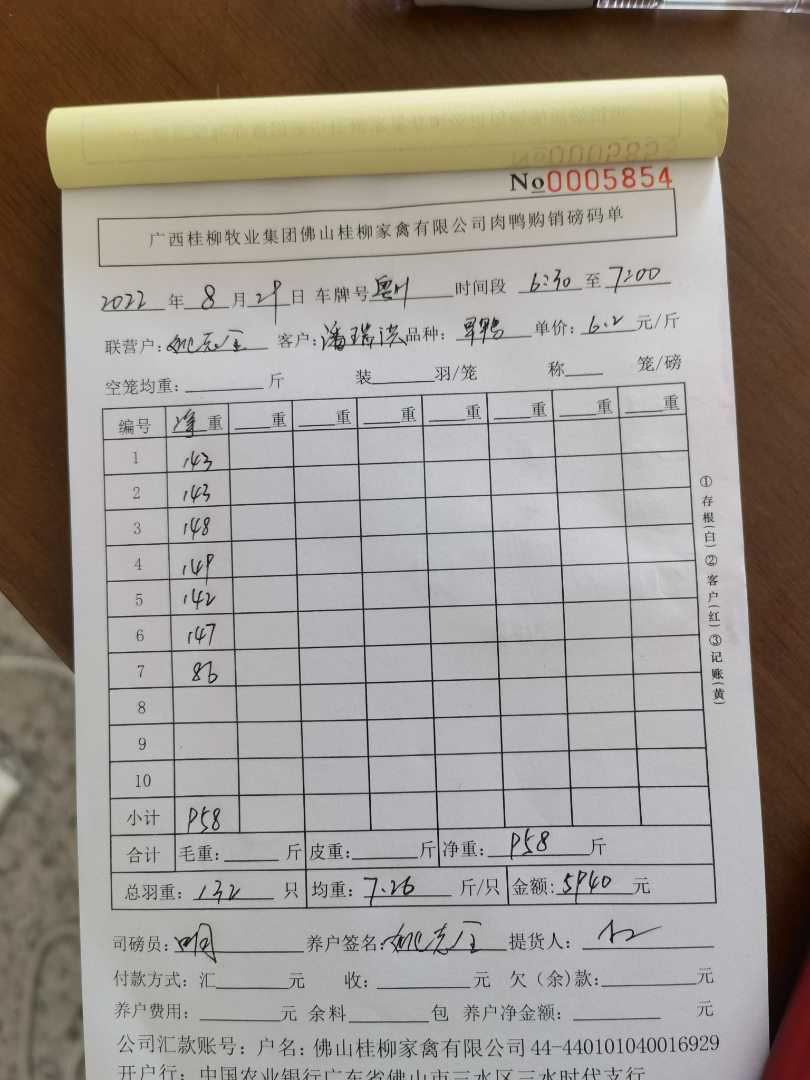 No 0005854
广西桂柳牧业集团佛山桂柳家禽有限公司肉鸭购销磅码单
2022年8月29日 车牌号 时间段 6:30至7:00
联营户: 客户:潘瑞洪 品种:旱鸭 单价:6.2元/斤
空笼均重: 斤 装 羽/笼 称 笼/磅
编号 净重 重 重 重 重 重 重 重
1 143
2 143
3 148
4 149
5 142
6 147
7 86
8
9
10
小计 958
合计 毛重: 斤 皮重: 斤 净重: 958 斤
总羽重: 132 只 均重: 7.26 斤/只 金额: 5940 元
司磅员: 明 养户签名: 提货人:
付款方式: 汇 元 收: 元 欠（余）款: 元
养户费用: 元 余料 包 养户净金额: 元
公司汇款账号: 户名: 佛山桂柳家禽有限公司 44-440101040016929
开户行: 中国农业银行广东省佛山市三水区三水时代支行
①存根(白)②客户(红)③记账(黄)